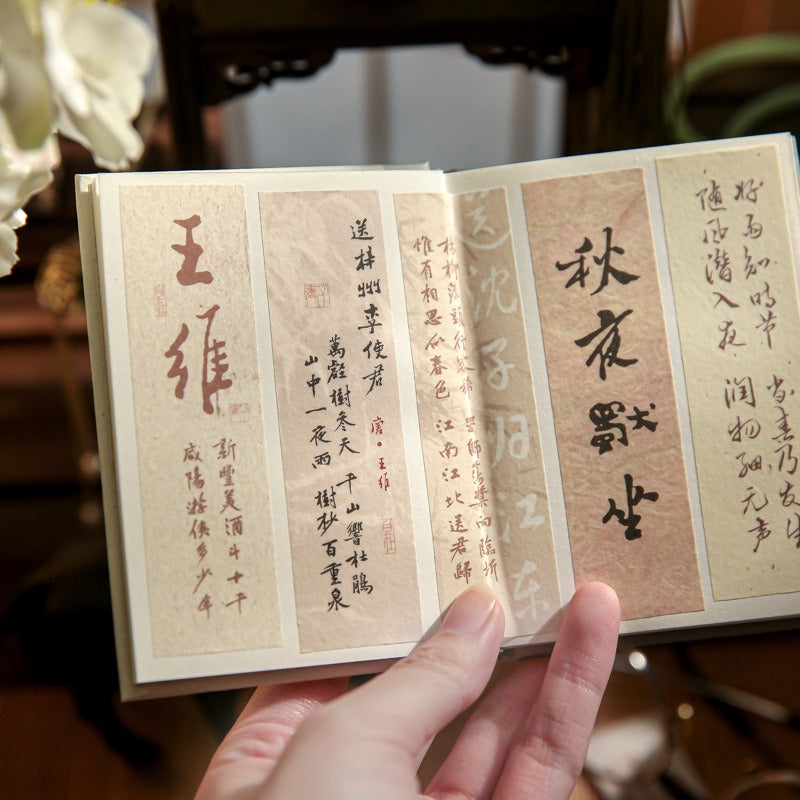 王维
新豐美酒斗十千
咸陽遊俠多少年
送梓州李使君
唐·王維
萬壑樹參天 千山響杜鵑
山中一夜雨 樹杪百重泉
送沈子归江东
杨柳渡頭行客稀 罟師蕩槳向臨圻
惟有相思似春色 江南江北送君歸
秋夜獨坐
好雨知时节 当春乃发生
随风潜入夜 润物细无声